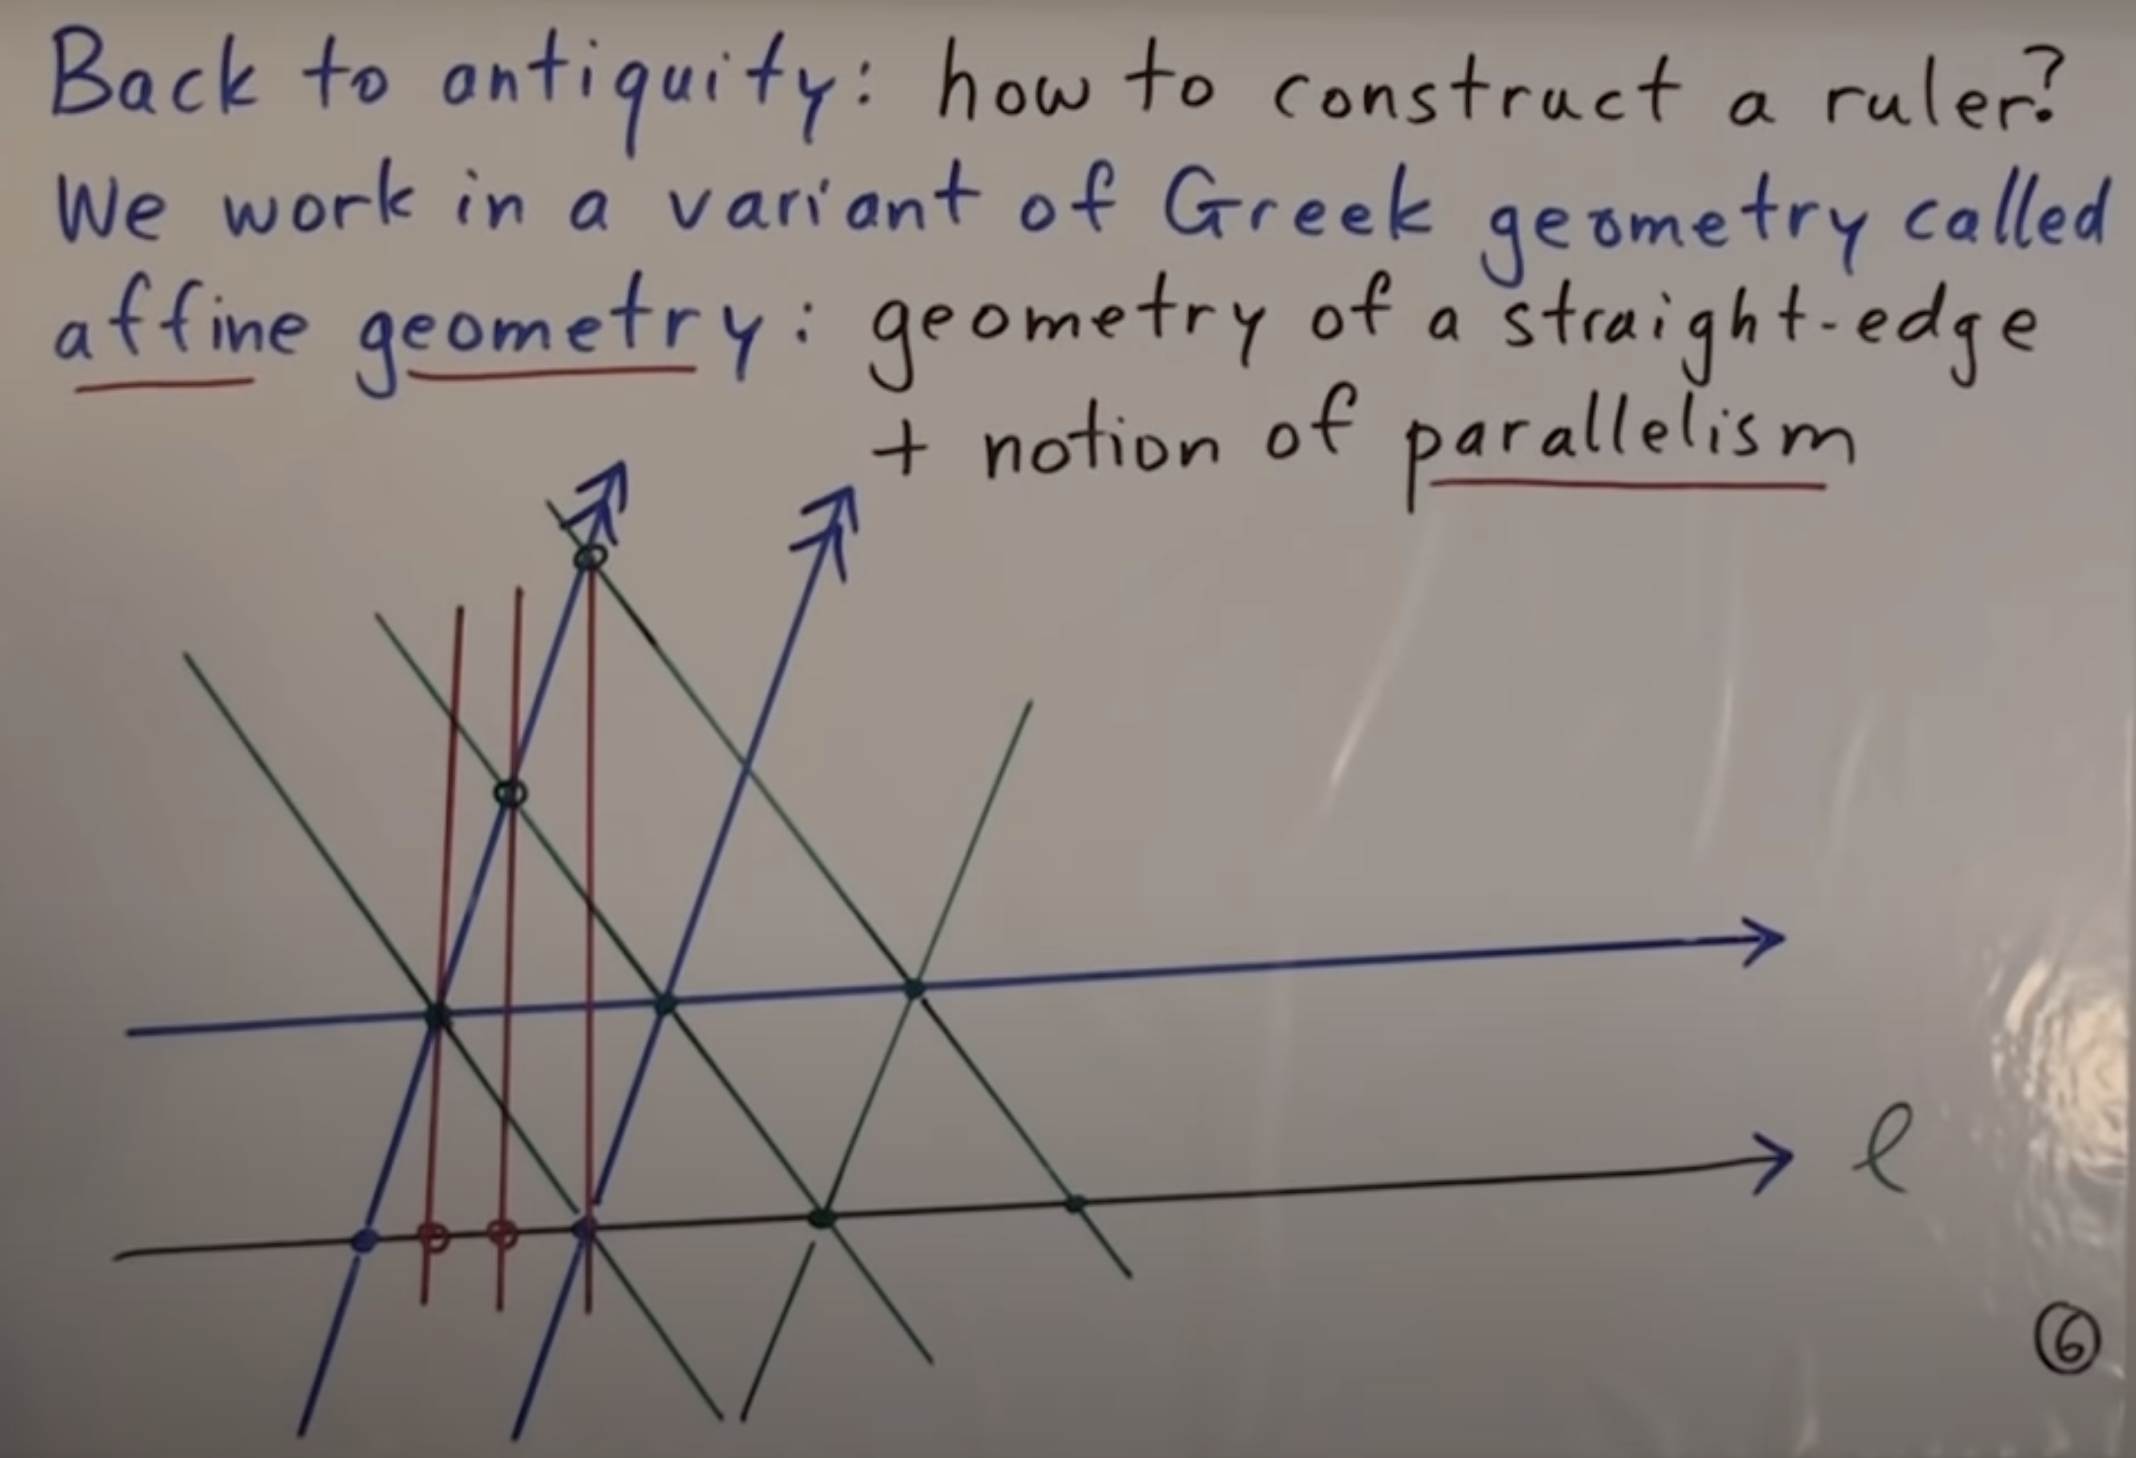 Back to antiquity: how to construct a ruler?
We work in a variant of Greek geometry called
affine geometry: geometry of a straight-edge
+ notion of parallelism
ℓ
6